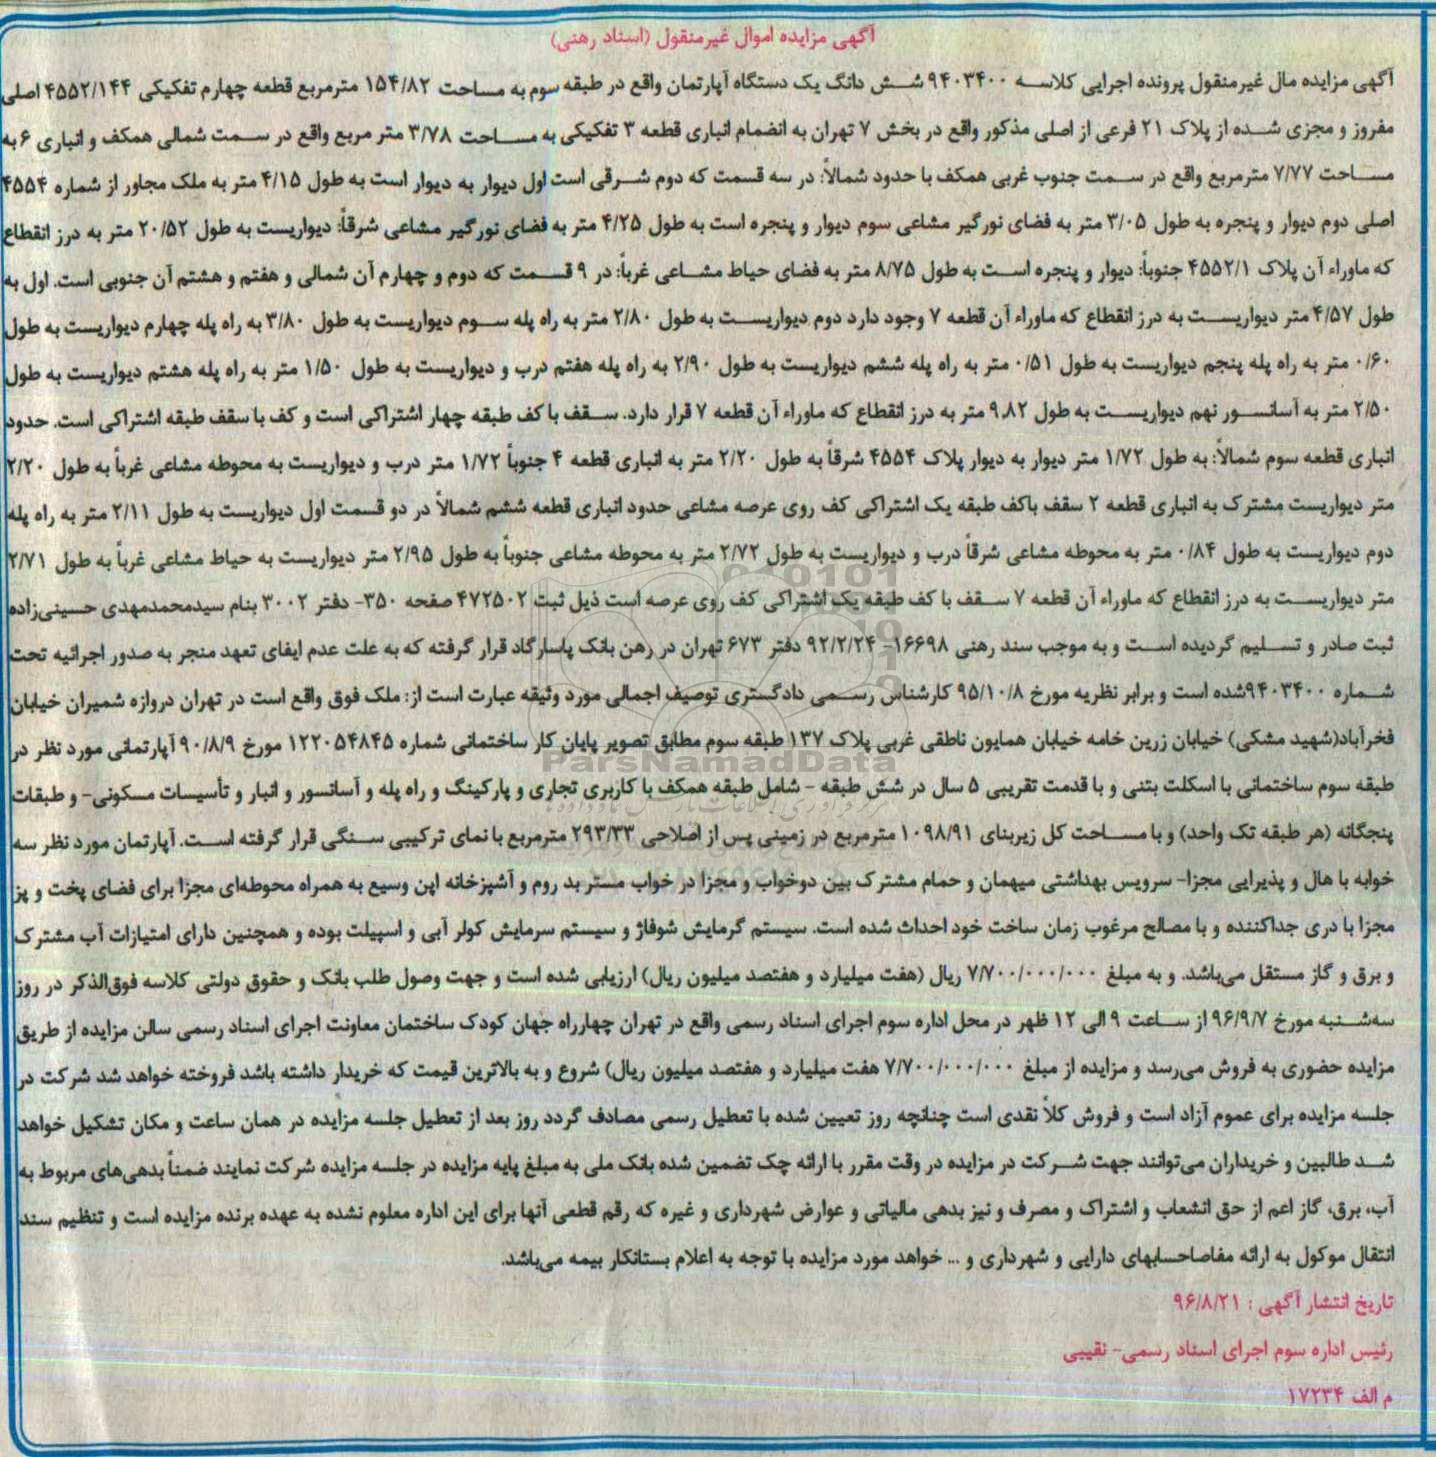 آگهی مزایده اموال غیرمنقول (اسناد رهنی)
آگهی مزایده مال غیرمنقول پرونده اجرایی کلاسه ۹۴۰۳۴۰۰ شش دانگ یک دستگاه آپارتمان واقع در طبقه سوم به مساحت ۱۵۴/۸۲ مترمربع قطعه چهارم تفکیکی ۴۵۵۲/۱۴۴ اصلی
مفروز و مجزی شده از پلاک ۲۱ فرعی از اصلی مذکور واقع در بخش ۷ تهران به انضمام انباری قطعه ۳ تفکیکی به مساحت ۳/۷۸ متر مربع واقع در سمت شمالی همکف و انباری ۶ به
مساحت ۷/۷۷ مترمربع واقع در سمت جنوب غربی همکف با حدود شمالاً: در سه قسمت که دوم شرقی است اول دیوار به دیوار است به طول ۴/۱۵ متر به ملک مجاور از شماره ۴۵۵۴
اصلی دوم دیوار و پنجره به طول ۳/۰۵ متر به فضای نورگیر مشاعی سوم دیوار و پنجره است به طول ۴/۲۵ متر به فضای نورگیر مشاعی شرقاً: دیواریست به طول ۲۰/۵۲ متر به درز انقطاع
که ماوراء آن پلاک ۴۵۵۲/۱ جنوباً: دیوار و پنجره است به طول ۸/۷۵ متر به فضای حیاط مشاعی غرباً: در ۹ قسمت که دوم و چهارم آن شمالی و هفتم و هشتم آن جنوبی است. اول به
طول ۴/۵۷ متر دیواریست به درز انقطاع که ماوراء آن قطعه ۷ وجود دارد دوم دیواریست به طول ۲/۸۰ متر به راه پله سوم دیواریست به طول ۳/۸۰ به راه پله چهارم دیواریست به طول
۰/۶۰ متر به راه پله پنجم دیواریست به طول ۰/۵۱ متر به راه پله ششم دیواریست به طول ۲/۹۰ به راه پله هفتم درب و دیواریست به طول ۱/۵۰ متر به راه پله هشتم دیواریست به طول
۲/۵۰ متر به آسانسور نهم دیواریست به طول ۹.۸۲ متر به درز انقطاع که ماوراء آن قطعه ۷ قرار دارد. سقف با کف طبقه چهار اشتراکی است و کف با سقف طبقه اشتراکی است. حدود
انباری قطعه سوم شمالاً: به طول ۱/۷۲ متر دیوار به دیوار پلاک ۴۵۵۴ شرقاً به طول ۲/۲۰ متر به انباری قطعه ۴ جنوباً ۱/۷۲ متر درب و دیواریست به محوطه مشاعی غرباً به طول ۲/۲۰
متر دیواریست مشترک به انباری قطعه ۲ سقف باکف طبقه یک اشتراکی کف روی عرصه مشاعی حدود انباری قطعه ششم شمالاً در دو قسمت اول دیواریست به طول ۲/۱۱ متر به راه پله
دوم دیواریست به طول ۰/۸۴ متر به محوطه مشاعی شرقاً درب و دیواریست به طول ۲/۷۲ متر به محوطه مشاعی جنوباً به طول ۲/۹۵ متر دیواریست به حیاط مشاعی غرباً به طول ۲/۷۱
متر دیواریست به درز انقطاع که ماوراء آن قطعه ۷ سقف با کف طبقه یک اشتراکی کف روی عرصه است ذیل ثبت ۴۷۲۵۰۲ صفحه ۳۵۰- دفتر ۳۰۰۲ بنام سیدمحمدمهدی حسینی‌زاده
ثبت صادر و تسلیم گردیده است و به موجب سند رهنی ۱۶۶۹۸- ۹۲/۲/۲۴ دفتر ۶۷۳ تهران در رهن بانک پاسارگاد قرار گرفته که به علت عدم ایفای تعهد منجر به صدور اجرائیه تحت
شماره ۹۴۰۳۴۰۰شده است و برابر نظریه مورخ ۹۵/۱۰/۸ کارشناس رسمی دادگستری توصیف اجمالی مورد وثیقه عبارت است از: ملک فوق واقع است در تهران دروازه شمیران خیابان
فخرآباد(شهید مشکی) خیابان زرین خامه خیابان همایون ناطقی غربی پلاک ۱۳۷ طبقه سوم مطابق تصویر پایان کار ساختمانی شماره ۱۲۲۰۵۴۸۴۵ مورخ ۹۰/۸/۹ آپارتمانی مورد نظر در
طبقه سوم ساختمانی با اسکلت بتنی و با قدمت تقریبی ۵ سال در شش طبقه - شامل طبقه همکف با کاربری تجاری و پارکینگ و راه پله و آسانسور و انبار و تأسیسات مسکونی- و طبقات
پنجگانه (هر طبقه تک واحد) و با مساحت کل زیربنای ۱۰۹۸/۹۱ مترمربع در زمینی پس از اصلاحی ۲۹۳/۳۳ مترمربع با نمای ترکیبی سنگی قرار گرفته است. آپارتمان مورد نظر سه
خوابه با هال و پذیرایی مجزا- سرویس بهداشتی میهمان و حمام مشترک بین دوخواب و مجزا در خواب مستر بد روم و آشپزخانه اپن وسیع به همراه محوطه‌ای مجزا برای فضای پخت و پز
مجزا با دری جداکننده و با مصالح مرغوب زمان ساخت خود احداث شده است. سیستم گرمایش شوفاژ و سیستم سرمایش کولر آبی و اسپیلت بوده و همچنین دارای امتیازات آب مشترک
و برق و گاز مستقل می‌باشد. و به مبلغ ۷/۷۰۰/۰۰۰/۰۰۰ ریال (هفت میلیارد و هفتصد میلیون ریال) ارزیابی شده است و جهت وصول طلب بانک و حقوق دولتی کلاسه فوق‌الذکر در روز
سه‌شنبه مورخ ۹۶/۹/۷ از ساعت ۹ الی ۱۲ ظهر در محل اداره سوم اجرای اسناد رسمی واقع در تهران چهارراه جهان کودک ساختمان معاونت اجرای اسناد رسمی سالن مزایده از طریق
مزایده حضوری به فروش می‌رسد و مزایده از مبلغ ۷/۷۰۰/۰۰۰/۰۰۰ هفت میلیارد و هفتصد میلیون ریال) شروع و به بالاترین قیمت که خریدار داشته باشد فروخته خواهد شد شرکت در
جلسه مزایده برای عموم آزاد است و فروش کلاً نقدی است چنانچه روز تعیین شده با تعطیل رسمی مصادف گردد روز بعد از تعطیل جلسه مزایده در همان ساعت و مکان تشکیل خواهد
شد طالبین و خریداران می‌توانند جهت شرکت در مزایده در وقت مقرر با ارائه چک تضمین شده بانک ملی به مبلغ پایه مزایده در جلسه مزایده شرکت نمایند ضمناً بدهی‌های مربوط به
آب، برق، گاز اعم از حق انشعاب و اشتراک و مصرف و نیز بدهی مالیاتی و عوارض شهرداری و غیره که رقم قطعی آنها برای این اداره معلوم نشده به عهده برنده مزایده است و تنظیم سند
انتقال موکول به ارائه مفاصاحسابهای دارایی و شهرداری و ... خواهد مورد مزایده با توجه به اعلام بستانکار بیمه می‌باشد.
تاریخ انتشار آگهی : ۹۶/۸/۲۱
رئیس اداره سوم اجرای اسناد رسمی- نقیبی
م الف ۱۷۲۳۴
ParsNamadData